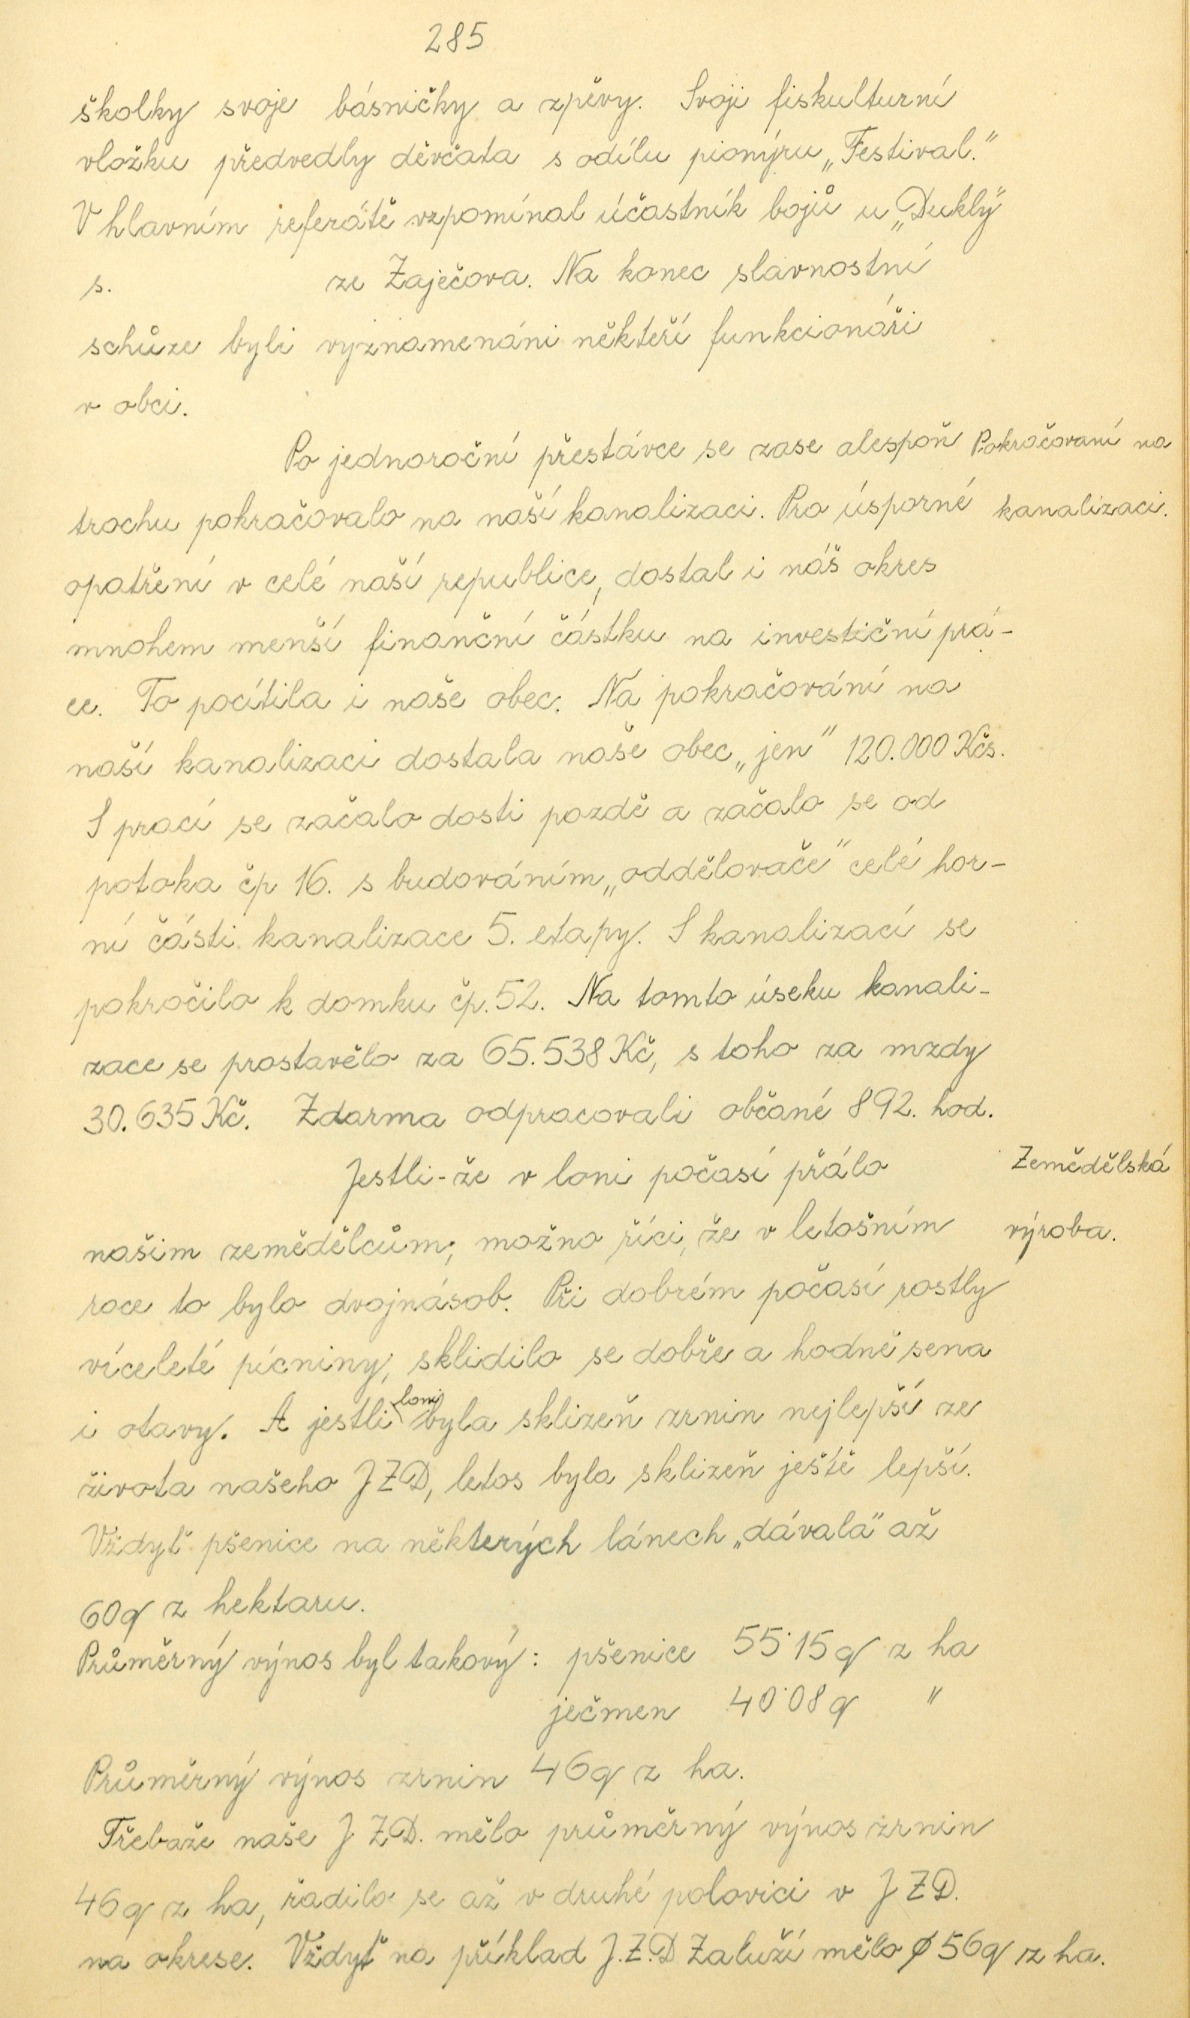 285
školky svoje básničky a zpěvy. Svoji fiskulturní
vložku předvedly děvčata s odílu pionýru „Festival.“
V hlavním referátě vzpomínal účastník bojů u „Dukly“
s. ze Zaječova. Na konec slavnostní
schůze byli vyznamenáni někteří funkcionáři
v obci.
Po jednoroční přestávce se zase alespoň
Pokračovaní na
trochu pokračovalo na naší kanalizaci. Pro úsporné
kanalizaci.
opatření v celé naší republice, dostal i náš okres
mnohem menší finanční částku na investiční prá-
ce. To pocítila i naše obec. Na pokračování na
naší kanalizaci dostala naše obec „jen“ 120.000 Kčs.
S prací se začalo dosti pozdě a začalo se od
potoka čp 16. s budováním „oddělovače“ celé hor-
ní části kanalizace 5. etapy. S kanalizací se
pokročilo k domku čp. 52. Na tomto úseku kanali-
zace se prostavělo za 65.538 Kč, s toho za mzdy
30.635 Kč. Zdarma odpracovali občané 892. hod.
Jestli-že v loni počasí přálo
Zemědělská
našim zemědělcům, možno říci, že v letošním
výroba.
roce to bylo dvojnásob. Při dobrém počasí rostly
víceleté pícniny, sklidilo se dobře a hodně sena
i otavy. A jestli loni byla sklizeň zrnin nejlepší ze
života našeho JZD, letos byla sklizeň ještě lepší.
Vždyť pšenice na některých lánech „dávala“ až
60q z hektaru.
Průměrný výnos byl takový: pšenice 55˙15q z ha
ječmen 40˙08q "
Průměrný výnos zrnin 46q z ha.
Třebaže naše J Z D. mělo průměrný výnos zrnin
46q z ha, řadilo se až v druhé polovici v J Z D.
na okrese. Vždyť na příklad J.Z.D Zaluží mělo ø 56q z ha.